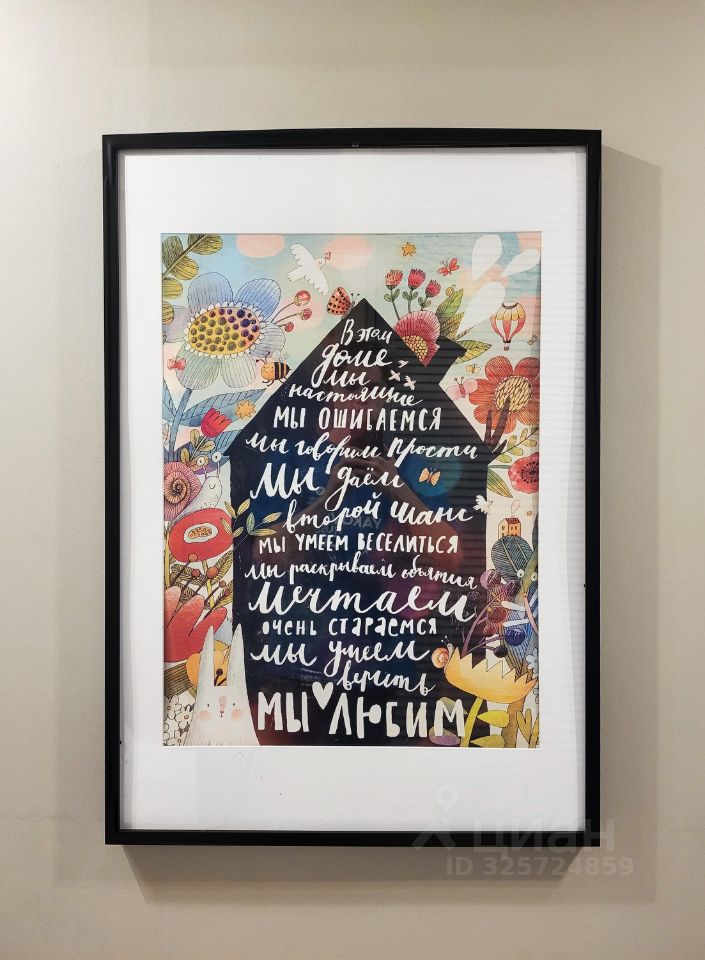 В этом
доме
мы
настоящие
МЫ ОШИБАЕМСЯ
мы говорим прости
Мы даём
второй шанс
МЫ УМЕЕМ ВЕСЕЛИТЬСЯ
мы раскрываем объятия
Мечтаем
ОЧЕНЬ СТАРАЕМСЯ
мы умеем
верить
МЫ ЛЮБИМ
циан
ID 325724859